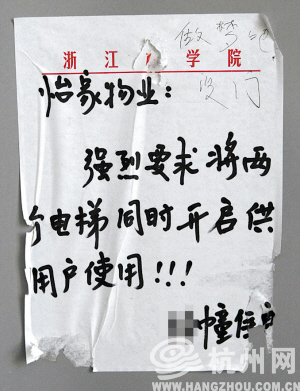 做梦吧
浙江学院
没门
怡家物业：
强烈要求将两
个电梯同时开启供
用户使用!!!
幢住户
杭州网
WWW.HANGZHOU.COM.CN